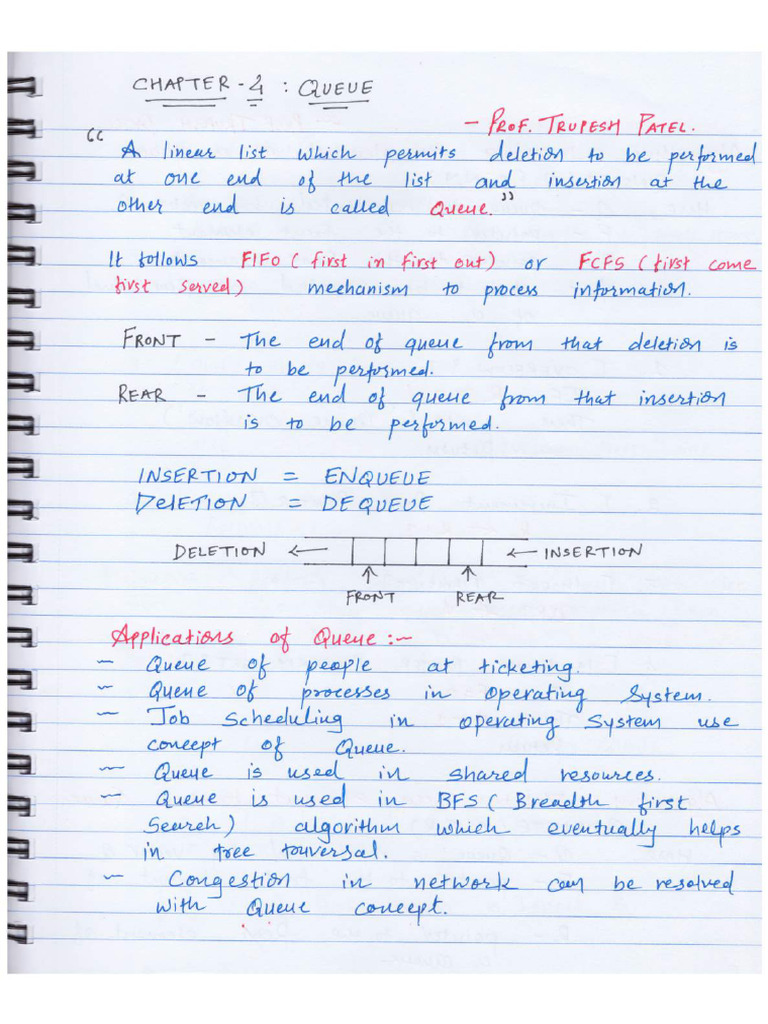 CHAPTER-4 : QUEUE
- PROF. TRUPESH PATEL.
"A linear list which permits deletion to be performed
at one end of the list and insertion at the
other end is called Queue."
It follows FIFO ( first in first out) or FCFS ( first come
first served) mechanism to process information.
FRONT - The end of queue from that deletion is
to be performed.
REAR - The end of queue from that insertion
is to be performed.
INSERTION = ENQUEUE
DElETION = DEQUEUE
DELETION ← ← INSERTION
↑ ↑
FRONT REAR
Applications of Queue :-
- Queue of people at ticketing.
- Queue of processes in operating System.
- Job Scheduling in operating System use
concept of Queue.
- Queue is used in shared resources.
- Queue is used in BFS ( Breadth first
Search) algorithm which eventually helps
in tree touversal.
- Congestion in network can be resolved
with Queue concept.